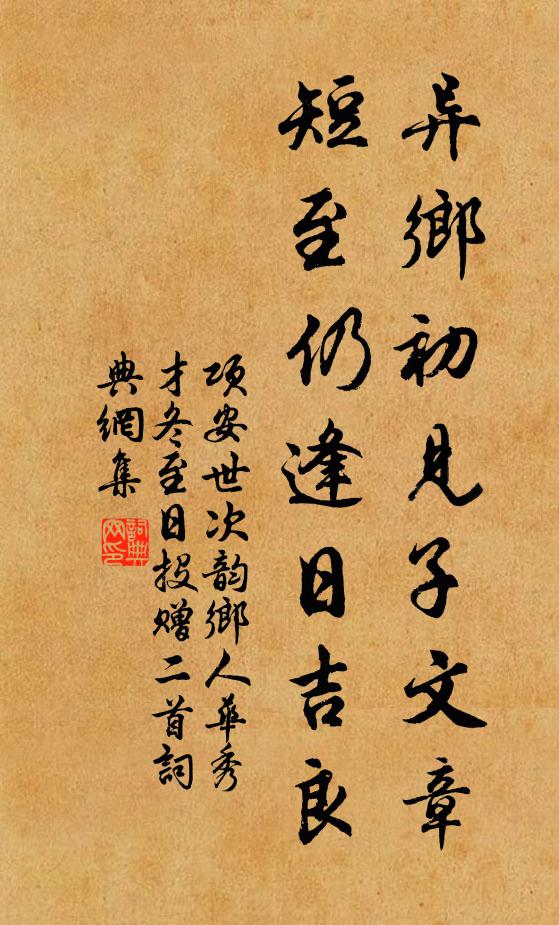 异鄉初見子文章
短至仍逢日吉良
項安世次韵鄉人華秀
才冬至日投贈二首詞
典網集
詞典
网印